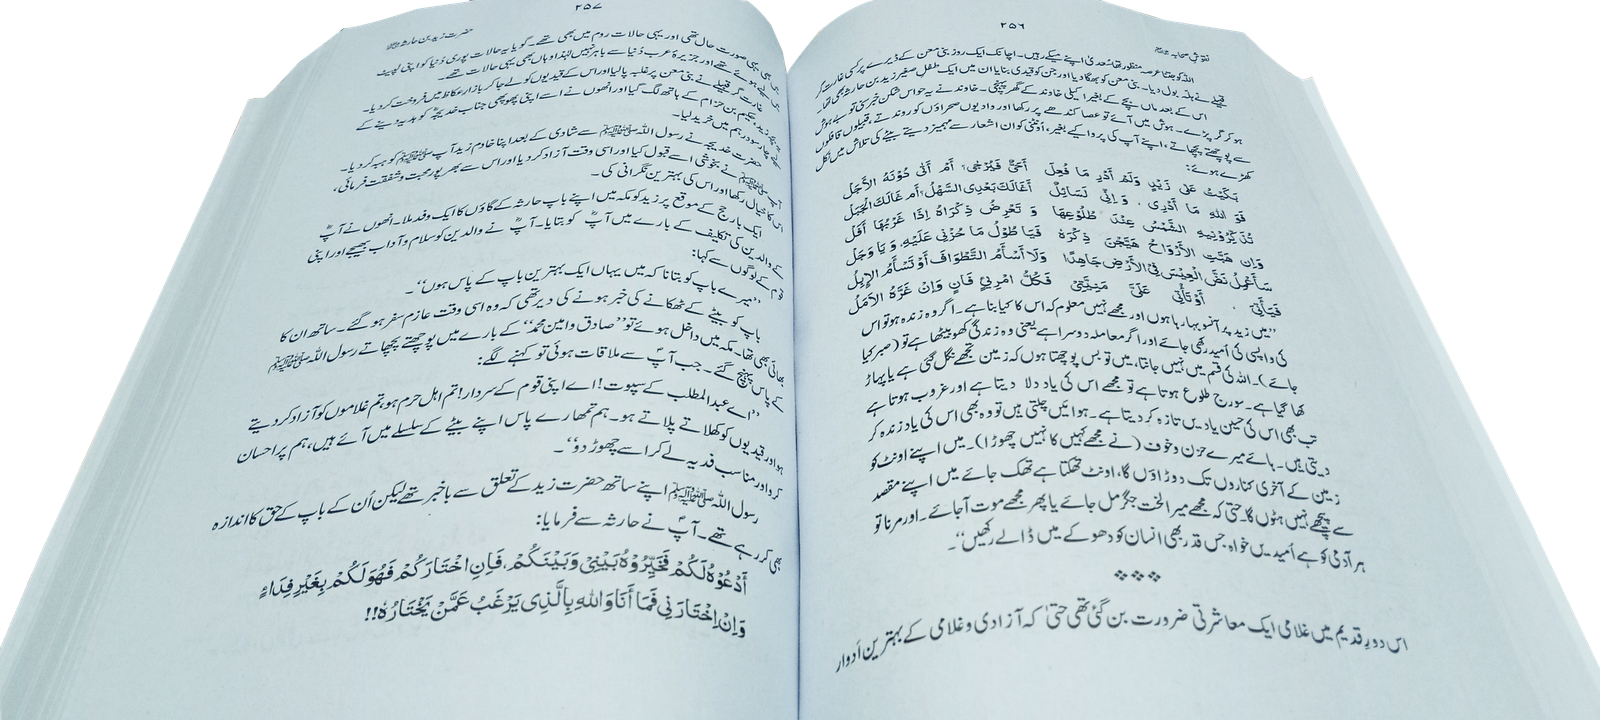 ۲۵۶
نقوشِ صحابہ
اللہ کو جتنا عرصہ منظور تھا سُعدیٰ اپنے میکے رہیں۔ اچانک ایک روز بنی معن کے ڈیرے پر کسی غارت گر
قبیلے نے ہلہ بول دیا۔ بنی معن کو بھگا دیا اور جن کو قیدی بنایا ان میں ایک طفلِ صغیر زید بن حارثہ بھی تھا۔
اس کے بعد ماں بچے کے بغیر اکیلی خاوند کے گھر پہنچی۔ خاوند نے یہ حواس شکن خبر سنی تو بے ہوش
ہو کر گر پڑے۔ ہوش میں آئے تو عصا کندھے پر رکھا اور وادیوں صحراؤں کو روندتے، قبیلوں قافلوں
سے پوچھتے پچھاتے، اپنے آپ کی پروا کیے بغیر، اُونٹنی کو ان اشعار سے مہمیز دیتے بیٹے کی تلاش میں نکل
کھڑے ہوئے:
بَكَيْتُ عَلٰى زَيْدٍ وَلَمْ اَدْرِ مَا فُعِلَ اَحَيٌّ فَيُرْجٰى؟ اَمْ اَتٰى دُوْنَهُ الْاَجَلُ
فَوَ اللّٰهِ مَا اَدْرِى وَاِنِّى لَسَائِلٌ اَغَالَكَ بَعْدِى السَّهْلُ؟ اَم غَالَكَ الْجَبَلُ
تُذَكِّرُنِيهِ الشَّمْسُ عِنْدَ طُلُوْعِهَا وَ تَعْرِضُ ذِكْرَاهُ اِذَا غَرْبُهَا اَفَلَ
وَاِن هَبَّتِ الْاَرْوَاحُ هَيَّجْنَ ذِكْرَهٗ فَيَا طُوْلُ مَا حُزْنِى عَلَيْهِ، وَ يَا وَجَلْ
سَأَعْمِلُ نَصَّ الْعِيْسِ فِى الْاَرْضِ جَاهِدًا وَلَا اَسْاَمُ التَّطْوَافَ اَوْ تَسْاَمُ الْاِبِلُ
حَيَاتِىْ اَوْ تَأْتِىْ عَلَىَّ مَنِيَّتِىْ فَكُلُّ امْرِئٍ فَانٍ وَاِنْ غَرَّهُ الْاَمَلُ
”میں زید پر آنسو بہا رہا ہوں اور مجھے نہیں معلوم کہ اس کا کیا بنا ہے۔ اگر وہ زندہ ہو تو اس
کی واپسی کی اُمید رکھی جائے اور اگر معاملہ دوسرا ہے یعنی وہ زندگی کھو بیٹھا ہے تو (صبر کیا
جائے)۔ اللہ کی قسم میں نہیں جانتا، میں تو بس پوچھتا ہوں کہ زمین تجھے نگل گئی ہے یا پہاڑ
کھا گیا ہے۔ سورج طلوع ہوتا ہے تو مجھے اس کی یاد دلا دیتا ہے اور غروب ہوتا ہے
تب بھی اس کی حسین یادیں تازہ کر دیتا ہے۔ ہوائیں چلتی ہیں تو وہ بھی اس کی یاد زندہ کر
دیتی ہیں۔ ہائے میرے حزن و خوف (نے مجھے کہیں کا نہیں چھوڑا)۔ میں اپنے اونٹ کو
زمین کے آخری کناروں تک دوڑاؤں گا، اونٹ تھکتا ہے تھک جائے میں اپنے مقصد
سے پیچھے نہیں ہٹوں گا۔ حتی کہ مجھے میرا لختِ جگر مل جائے یا پھر مجھے موت آجائے۔ اور مرنا تو
ہر آدمی کو ہے اُمیدیں خواہ جس قدر بھی انسان کو دھوکے میں ڈالے رکھیں“۔
اس دورِ قدیم میں غلامی ایک معاشرتی ضرورت بن گئی تھی حتیٰ کہ آزادی و غلامی کے بہترین اَدوار
۲۵۷
حضرت زید بن حارثہ
بھی یہی صورت حال تھی اور یہی حالات روم میں بھی تھے۔ گویا یہ حالات پوری دُنیا کو اپنی لپیٹ
لیے ہوئے تھے اور جزیرۂ عرب دُنیا سے باہر نہیں لہٰذا وہاں بھی یہی حالات تھے۔
غارت گر قبیلے نے بنی معن پر غلبہ پا لیا اور اس کے قیدیوں کو لے جا کر بازارِ عکاظ میں فروخت کر دیا۔
زید، حکیم بن حزام کے ہاتھ لگ گیا اور انھوں نے اسے اپنی پھوپھی جناب خدیجہؓ کو ہدیہ دینے کے
چار سو درہم میں خرید لیا۔
حضرت خدیجہؓ نے رسول اللہ ﷺ سے شادی کے بعد اپنا خادم زید آپ ﷺ کو ہبہ کر دیا۔
آپ ﷺ نے بخوشی اسے قبول کیا اور اسی وقت آزاد کر دیا اور اس سے بھرپور محبت و شفقت فرمائی،
اس کا خیال رکھا اور اس کی بہترین نگرانی کی۔
ایک بار حج کے موقع پر زید کو مکہ میں اپنے باپ حارثہ کے گاؤں کا ایک وفد ملا۔ انھوں نے آپؓ
کے والدین کی تکلیف کے بارے میں آپؓ کو بتایا۔ آپؓ نے والدین کو سلام و آداب بھیجے اور اپنی
قوم کے لوگوں سے کہا:
”میرے باپ کو بتانا کہ میں یہاں ایک بہترین باپ کے پاس ہوں“۔
باپ کو بیٹے کے ٹھکانے کی خبر ہونے کی دیر تھی کہ وہ اسی وقت عازم سفر ہو گئے۔ ساتھ ان کا
بھائی بھی تھا۔ مکہ میں داخل ہوئے تو ”صادق و امین محمدؐ“ کے بارے میں پوچھتے پچھاتے رسول اللہ ﷺ
کے پاس پہنچ گئے۔ جب آپؐ سے ملاقات ہوئی تو کہنے لگے:
”اے عبدالمطلب کے سپوت! اے اپنی قوم کے سردار! تم اہل حرم ہو، تم غلاموں کو آزاد کر دیتے
ہو اور قیدیوں کو کھلاتے پلاتے ہو۔ ہم تمھارے پاس اپنے بیٹے کے سلسلے میں آئے ہیں، ہم پر احسان
کرو اور مناسب فدیہ لے کر اسے چھوڑ دو“۔
رسول اللہ ﷺ اپنے ساتھ حضرت زید کے تعلق سے باخبر تھے لیکن اُن کے باپ کے حق کا اندازہ
بھی کر رہے تھے۔ آپؐ نے حارثہ سے فرمایا:
اُدْعُوْهُ لَكُمْ فَخَيِّرُوْهُ بَيْنِىْ وَبَيْنَكُمْ، فَاِنِ اخْتَارَكُمْ فَهُوَ لَكُمْ بِغَيْرِ فِدَاءٍ
وَاِنِ اخْتَارَنِى فَمَا اَنَا وَاللّٰهِ بِالَّذِى يَرْغَبُ عَمَّنْ يَّخْتَارُهٗ!!